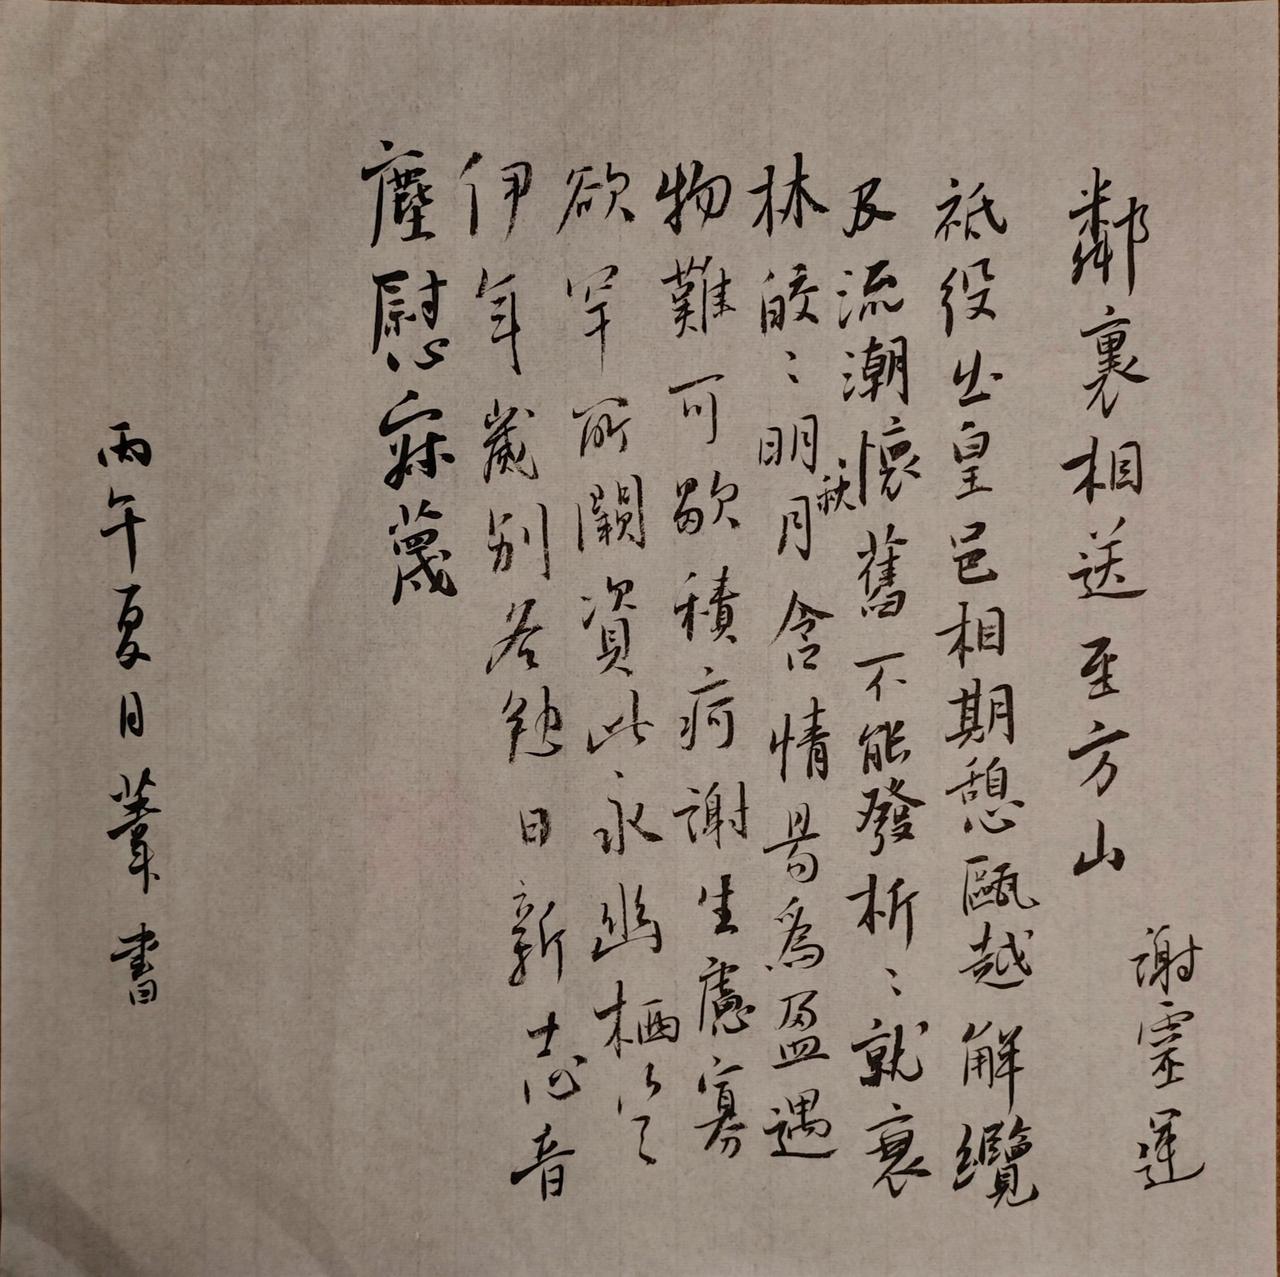 鄰裏相送至方山
謝靈運
祗役出皇邑相期憩甌越解纜
及流潮懷舊不能發析〻就衰
林皎〻明秋月含情易爲盈遇
物難可歇積疴謝生慮寡
欲罕所闕資此永幽栖豈
伊年歲別各勉日新志音
塵慰寂蔑
丙午夏日葦書